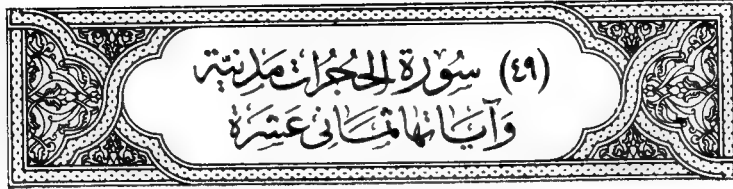 (٤٩) سُورَة الحُجُرات مَدنيّة
وَآيَاتها ثمَانى عَشرَة